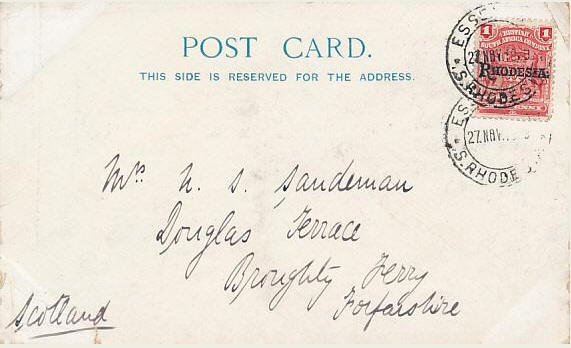 POST CARD.
THIS SIDE IS RESERVED FOR THE ADDRESS.
1 BRITISH 1
SOUTH AFRICA COMPANY
RHODESIA.
27 NOV
S. RHODESIA
27. NOV.
S. RHODE
Mrs N. S. Sandeman
Douglas Terrace
Broughty Ferry
Forfarshire
Scotland